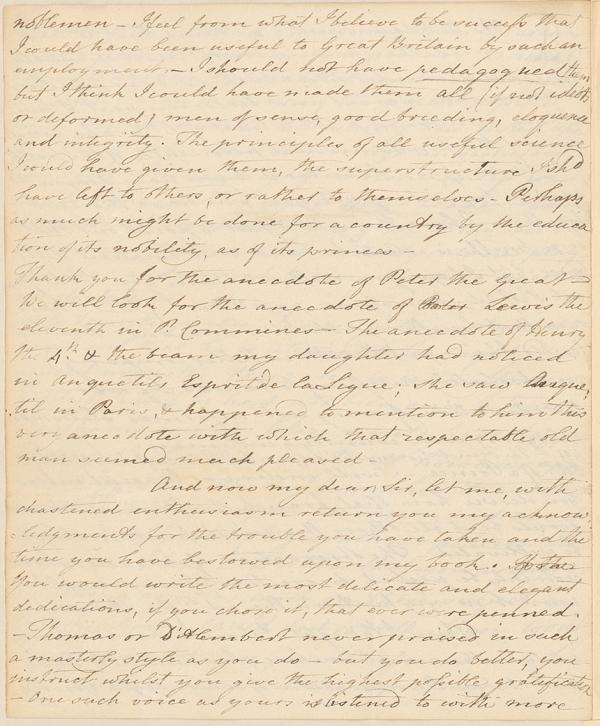 noblemen – I feel from what I believe to be success that
I could have been useful to Great Britain by such an
employment. – I should not have pedagogued them
but I think I could have made them all (if not idiots
or deformed) men of sense, good breeding, eloquence
and integrity. The principles of all useful science
I would have given them, the superstructure I shd
have left to others, or rather to themselves – Perhaps
as much might be done for a country by the educa
tion of its nobility, as of its princes –
Thank you for the anecdote of Peter the Great –
We will look for the anecdote of Lewis the
eleventh in P. Commines – The anecdote of Henry
the 4th & the beam my daughter had noticed
in Anquetil's Esprit de la Ligue; she saw Anque,
til in Paris, & happened to mention to him this
very anecdote with which that respectable old
man seemed much pleased –
And now my dear Sir, let me, with
chastened enthusiasm return you my acknow
=ledgments for the trouble you have taken and the
time you have bestowed upon my book.
You would write the most delicate and elegant
dedications, if you chose it, that ever were penned.
– Thomas or D'Alembert never praised in such
a masterly style as you do – but you do better, you
instruct whilst you give the highest possible gratification
– One such voice as yours is listened to with more